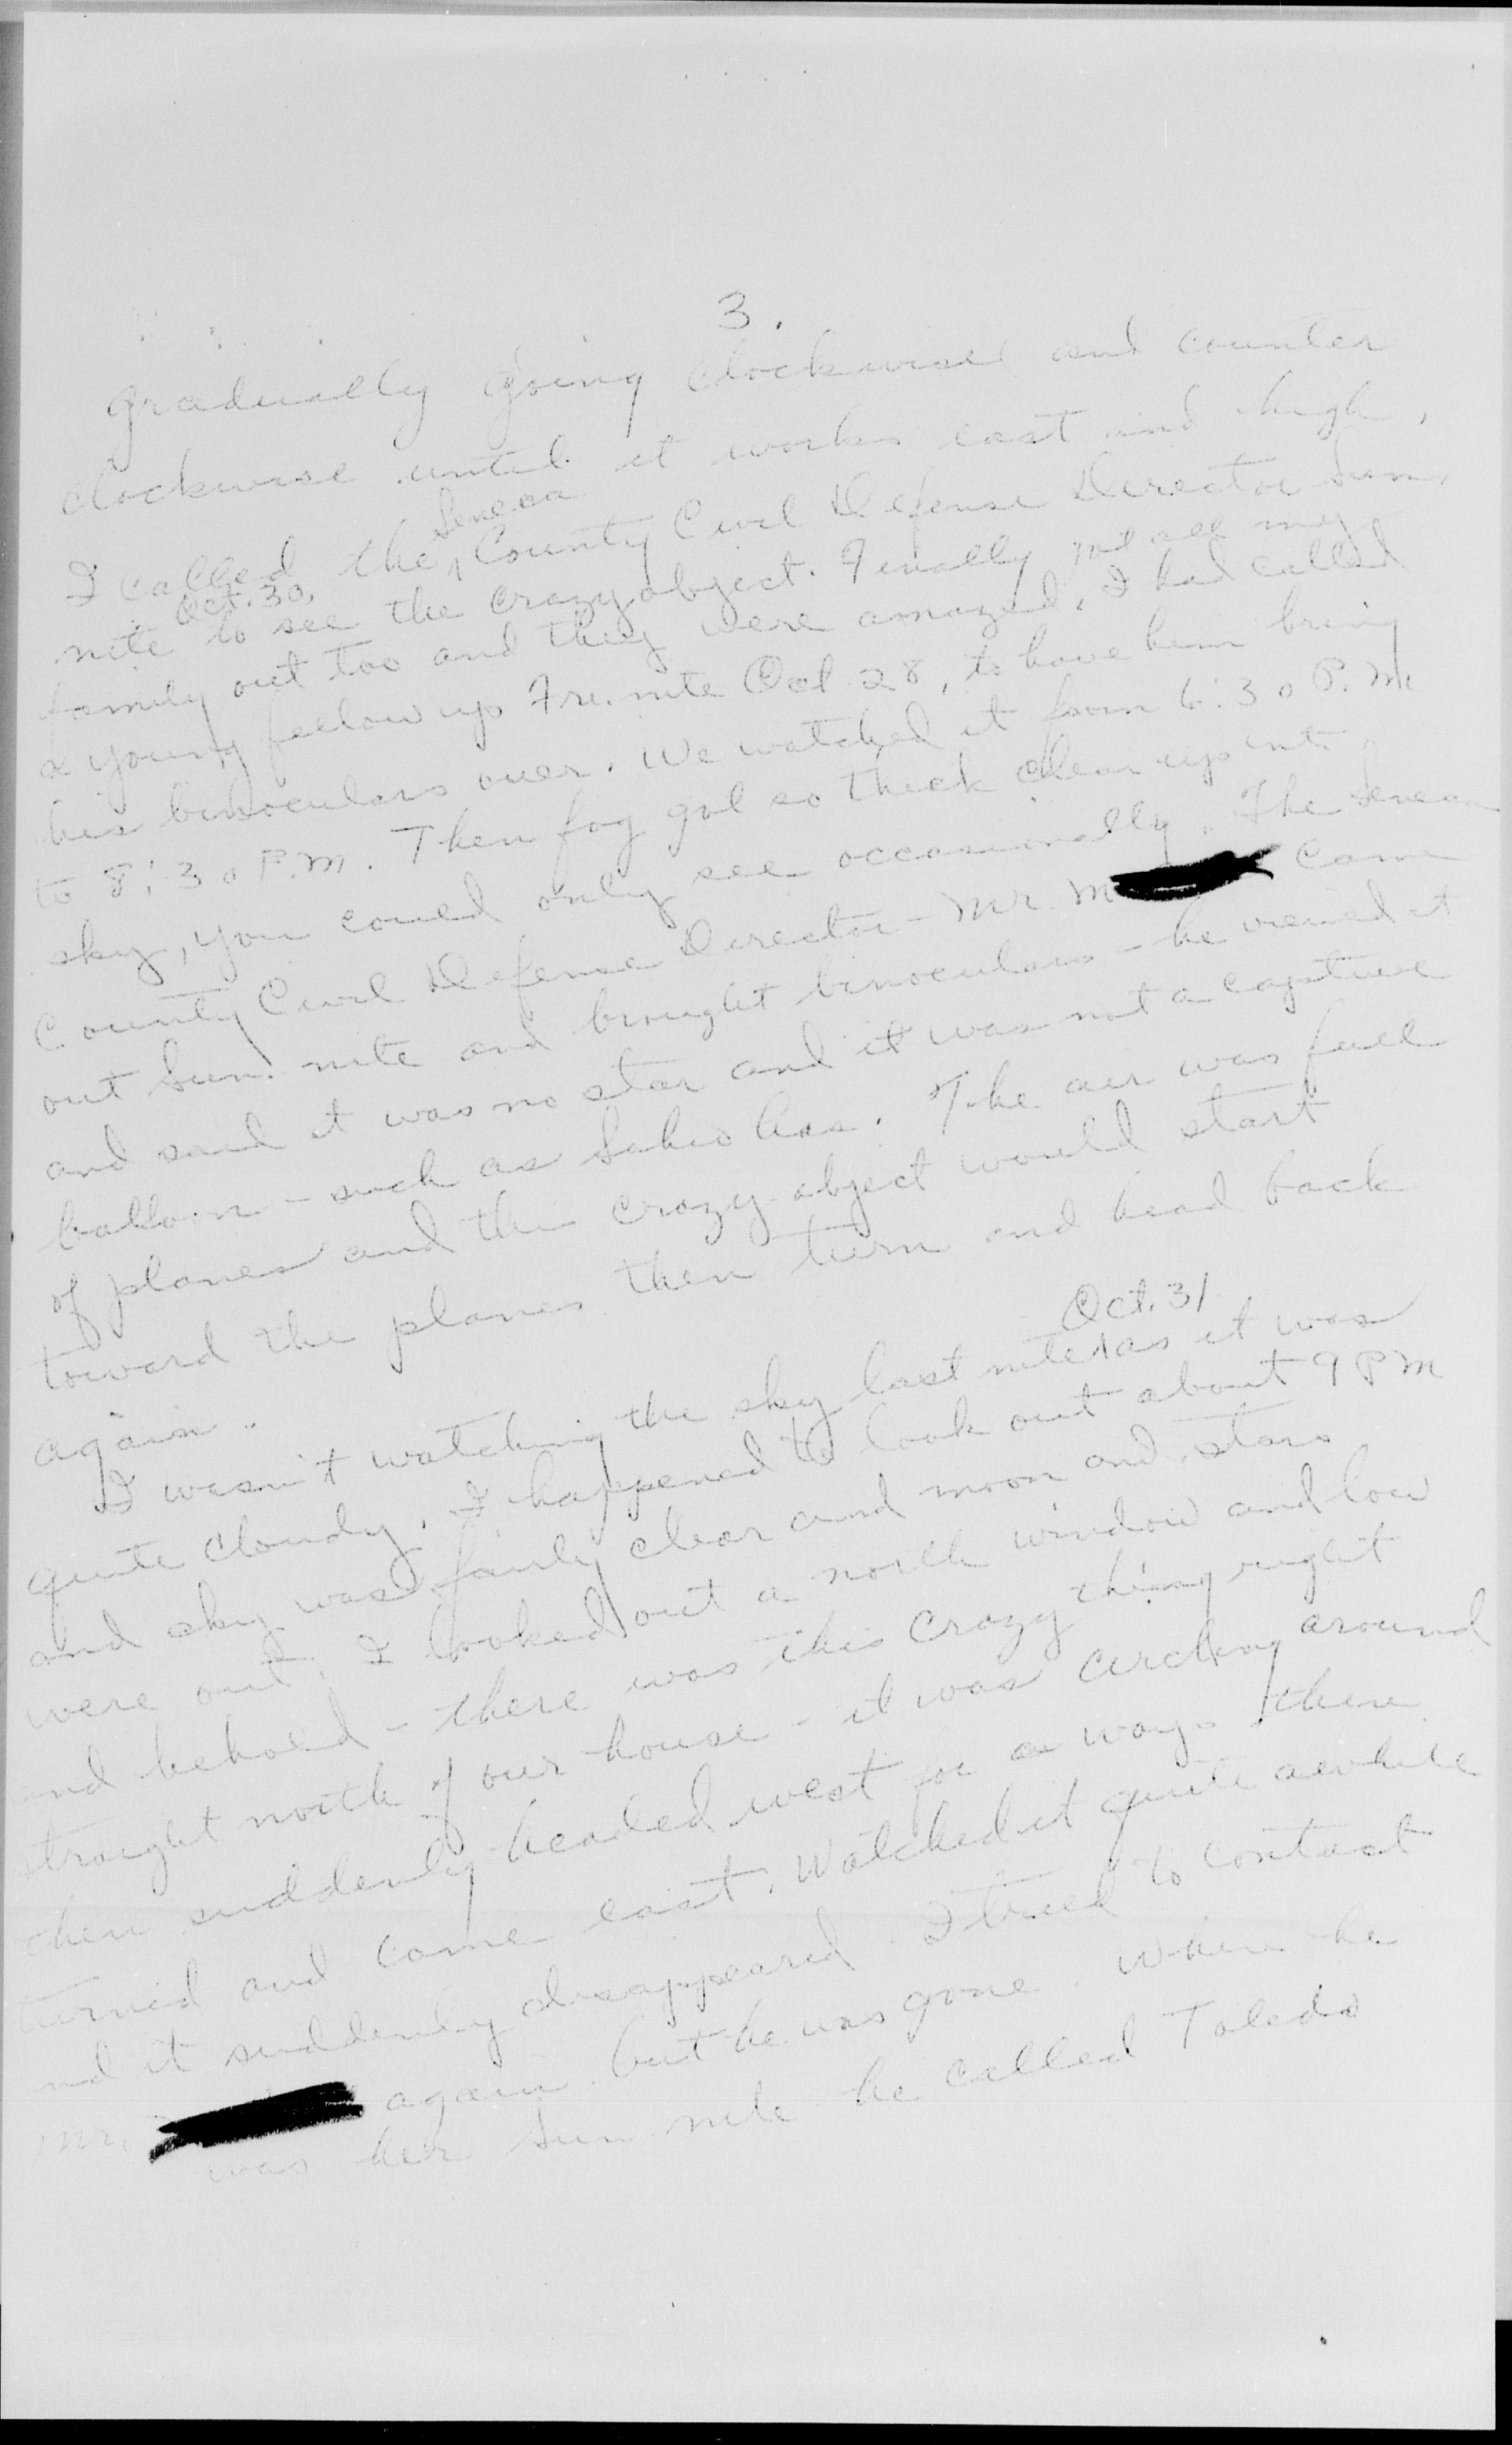 3.
gradually going clockwise and counter
clockwise until it works east and high.
I called the Seneca County Civil Defense Director Sun.
nite Oct. 30, to see the crazy object. Finally got all my
family out too and they were amazed. I had called
a young fellow up Fri. nite Oct 28, to have him bring
his binoculars over. We watched it from 6:30 P.M.
to 8:30 P.M. Then fog got so thick clear up into
sky, you could only see occasionally. The Seneca
County Civil Defense Director - Mr. M came
out Sun. nite and brought binoculars - he viewed it
and said it was no star and it was not a captive
balloon - such as has. The air was full
of planes and the crazy object would start
toward the planes then turn and head back
again.
I wasn't watching the sky last nite Oct. 31 as it was
quite cloudy. I happened to look out about 9 PM
and sky was fairly clear and moon and stars
were out. I looked out a north window and low
and behold - there was this crazy thing right
straight north of our house - it was circling around
then suddenly headed west for a ways then
turned and came east. Watched it quite awhile
and it suddenly disappeared. I tried to contact
Mr. again but he was gone. When he
was her Sun nite he called Toledo